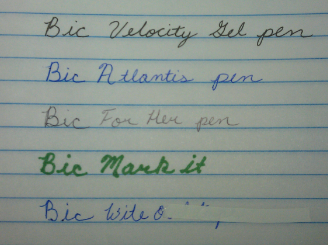 Bic Velocity Gel pen
Bic Atlantis pen
Bic For Her pen
Bic Mark it
Bic Wite O. " " ,